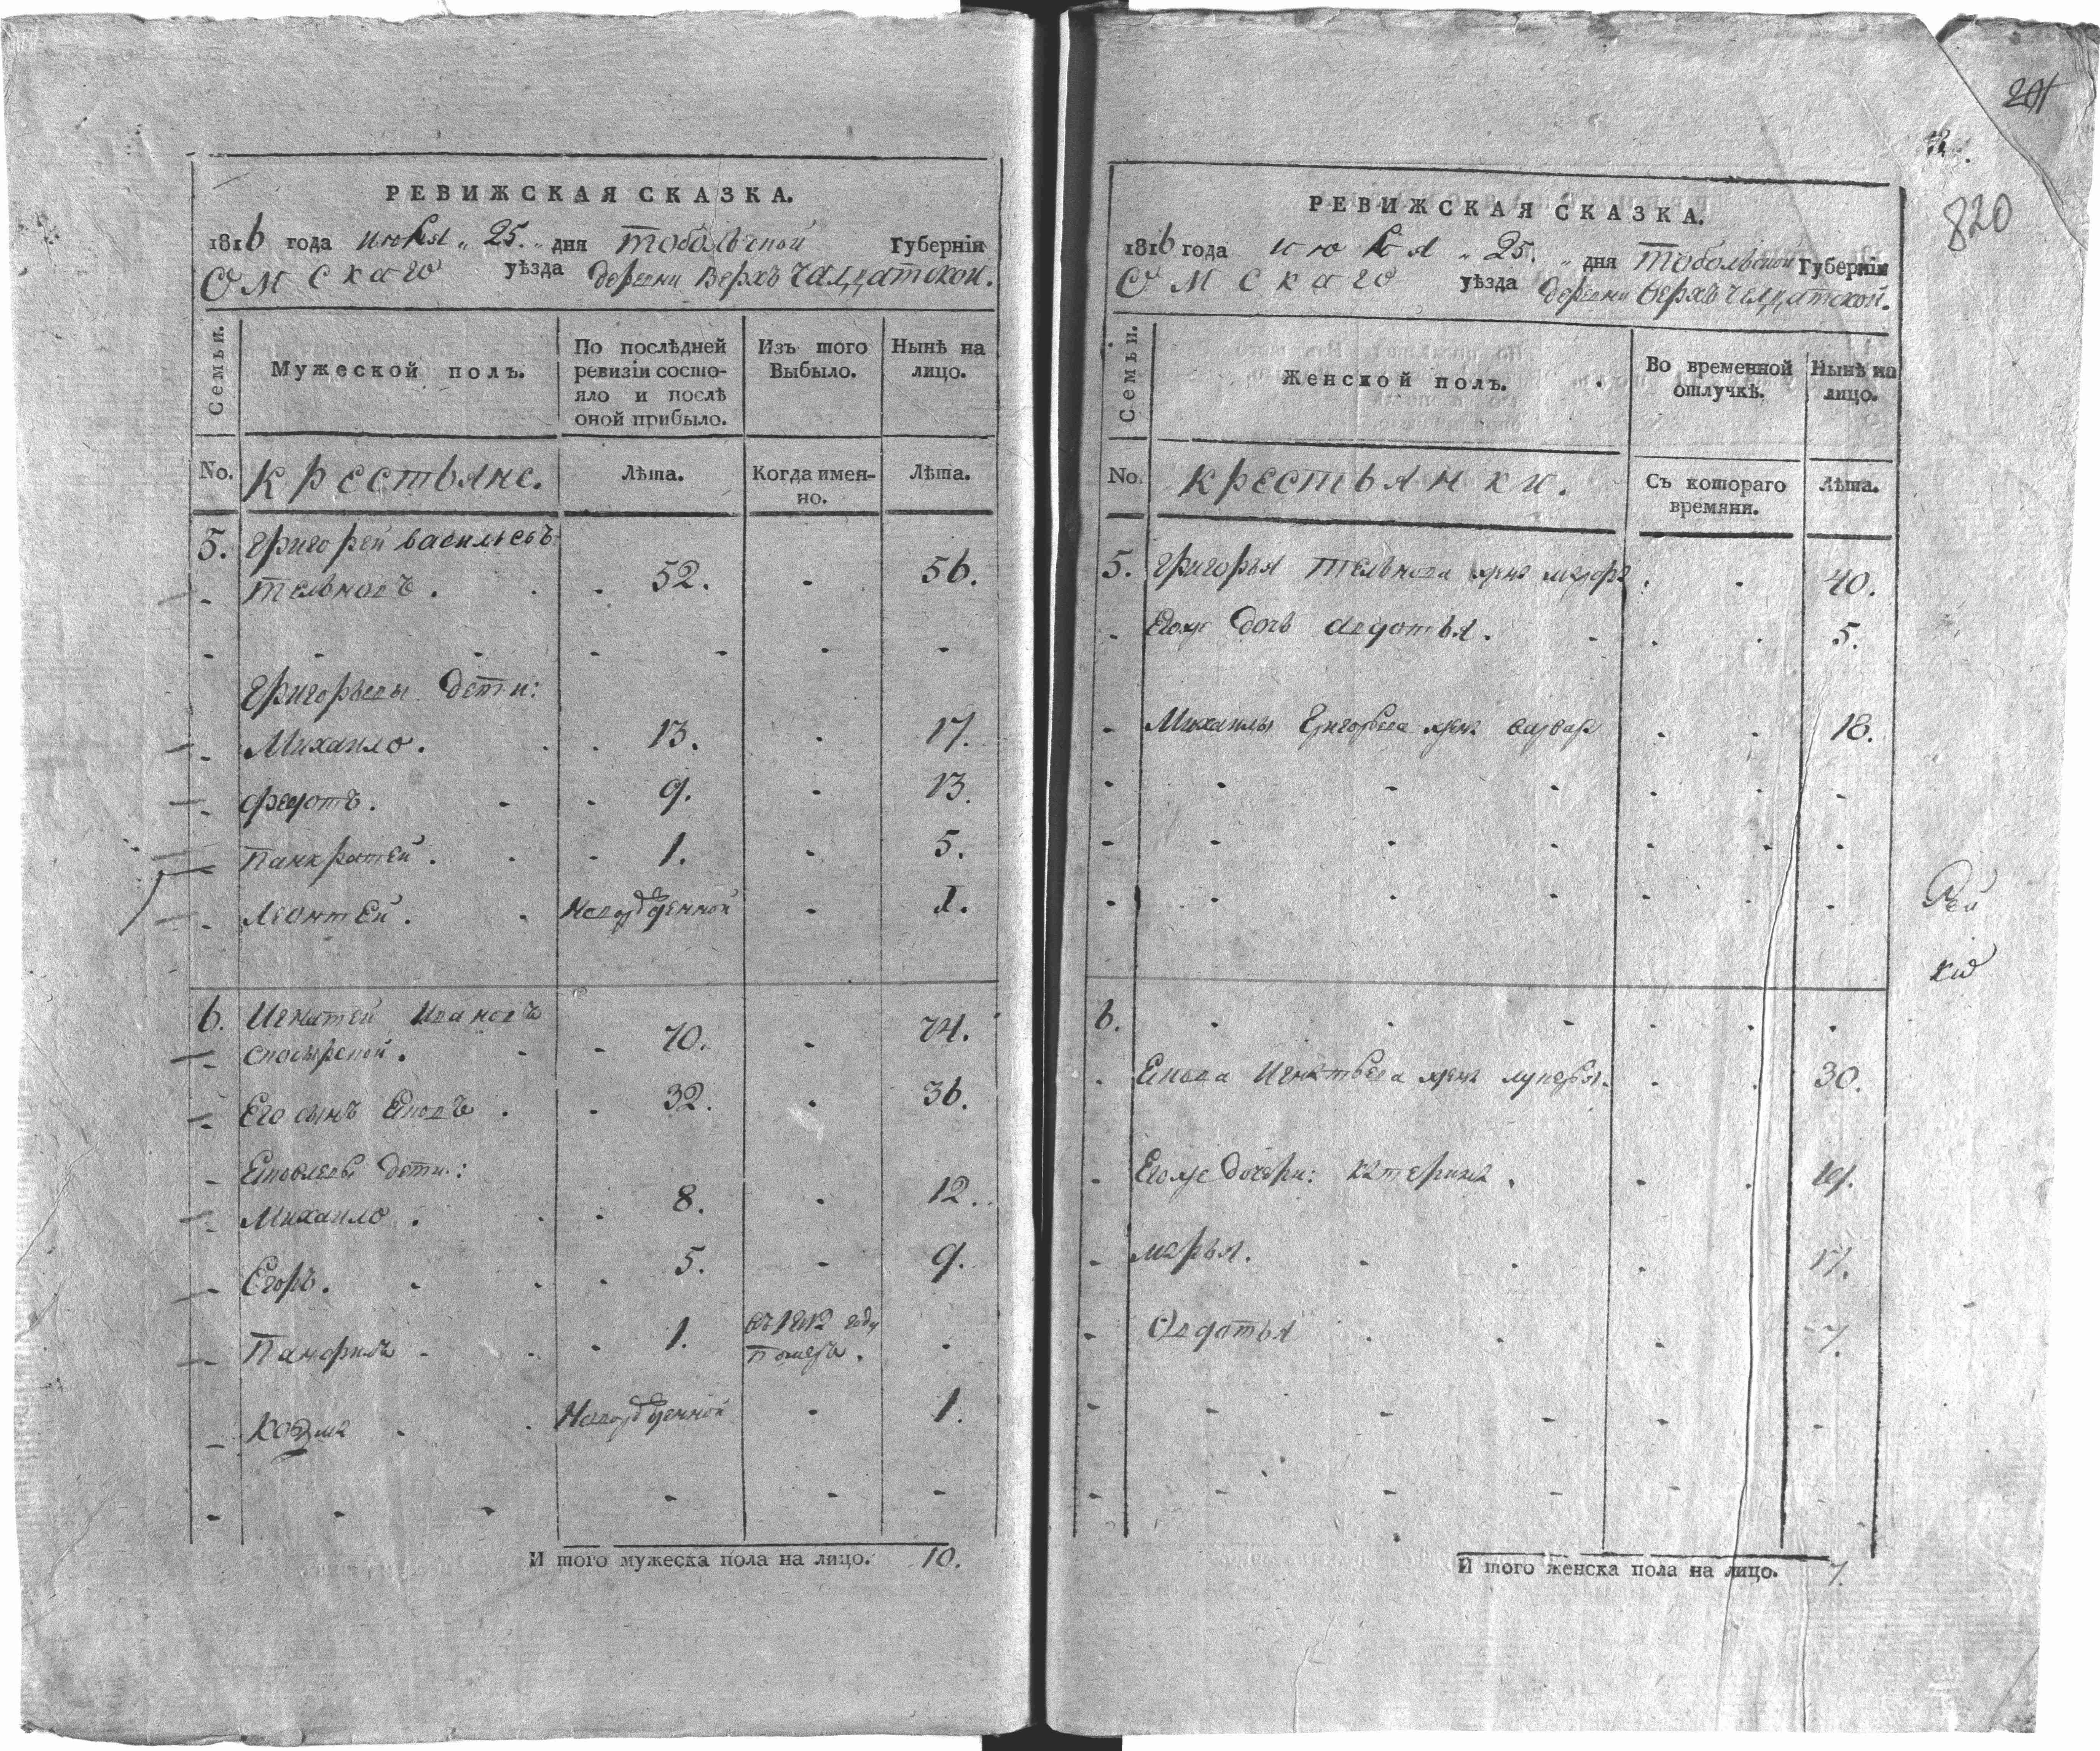 РЕВИЖСКАЯ СКАЗКА.
1816 года июля „ 25. „ дня Тобольской Губерніи
Омскаго уѣзда деревни Верхъ Чалдатской.
Семьи. Мужеской полъ. По послѣдней ревизіи состояло и послѣ оной прибыло. Изъ того Выбыло. Нынѣ на лицо.
No. Крестьяне. Лѣта. Когда именно. Лѣта.
5. Григорей Васильевъ
Тельновъ. 52. 56.
Григорьевы дети:
Михаило. 13. 17.
Федотъ. 9. 13.
Панкратей. 1. 5.
Леонтей. Новорожденной 1.
6. Игнатей Ивановъ
70. 74.
Его сынъ Ековъ. 32. 36.
Ековлевы дети:
Михаило. 8. 12.
Егоръ. 5. 9.
Панфилъ 1. въ 1812 году
померъ.
Козма Новорожденной 1.
И того мужеска пола на лицо. 10.
201
820
РЕВИЖСКАЯ СКАЗКА.
1816 года июля „ 25. „ дня Тобольской Губерніи
Омскаго уѣзда деревни Верхъ Челдатской.
Семьи. Женской полъ. Во временной отлучкѣ. Нынѣ на лицо.
No. Крестьянки. Съ котораго времяни. Лѣта.
5. Григорья Тельнова жена 40.
Егожъ дочь Авдотья. 5.
Михаилы Григорьева жена Варвар 18.
6.
Екова Игнатьева жена Лукерья. 30.
Егоже дочери: Катерина. 19.
Марья. 17.
Овдотья 7.
И того женска пола на лицо. 7.